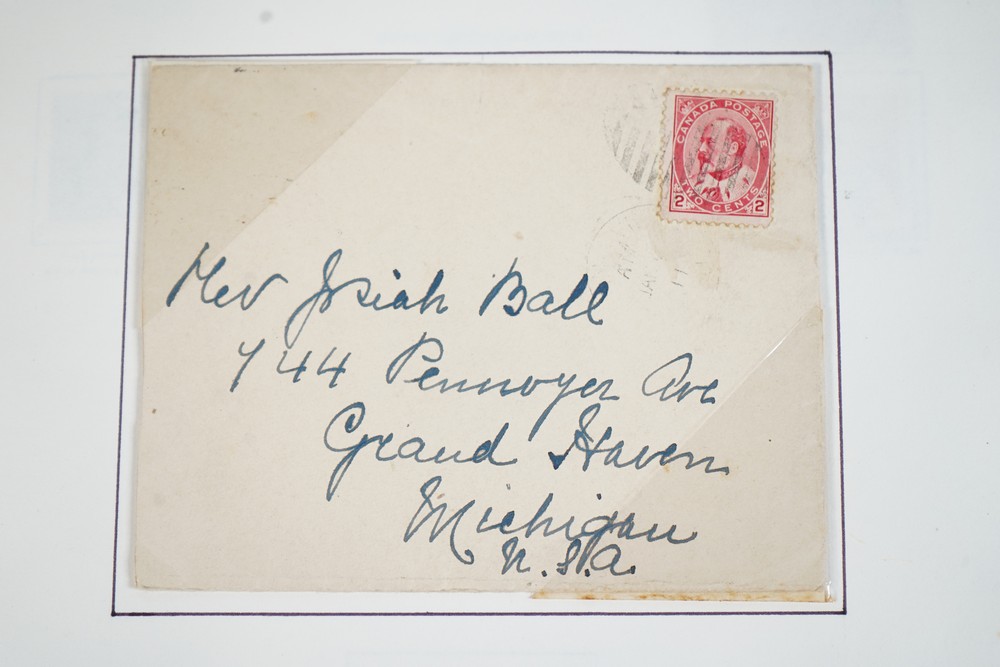 CANADA POSTAGE
TWO CENTS
2 2
Rev Josiah Ball
744 Pennoyer Ave
Grand Haven
Michigan
U.S.A.